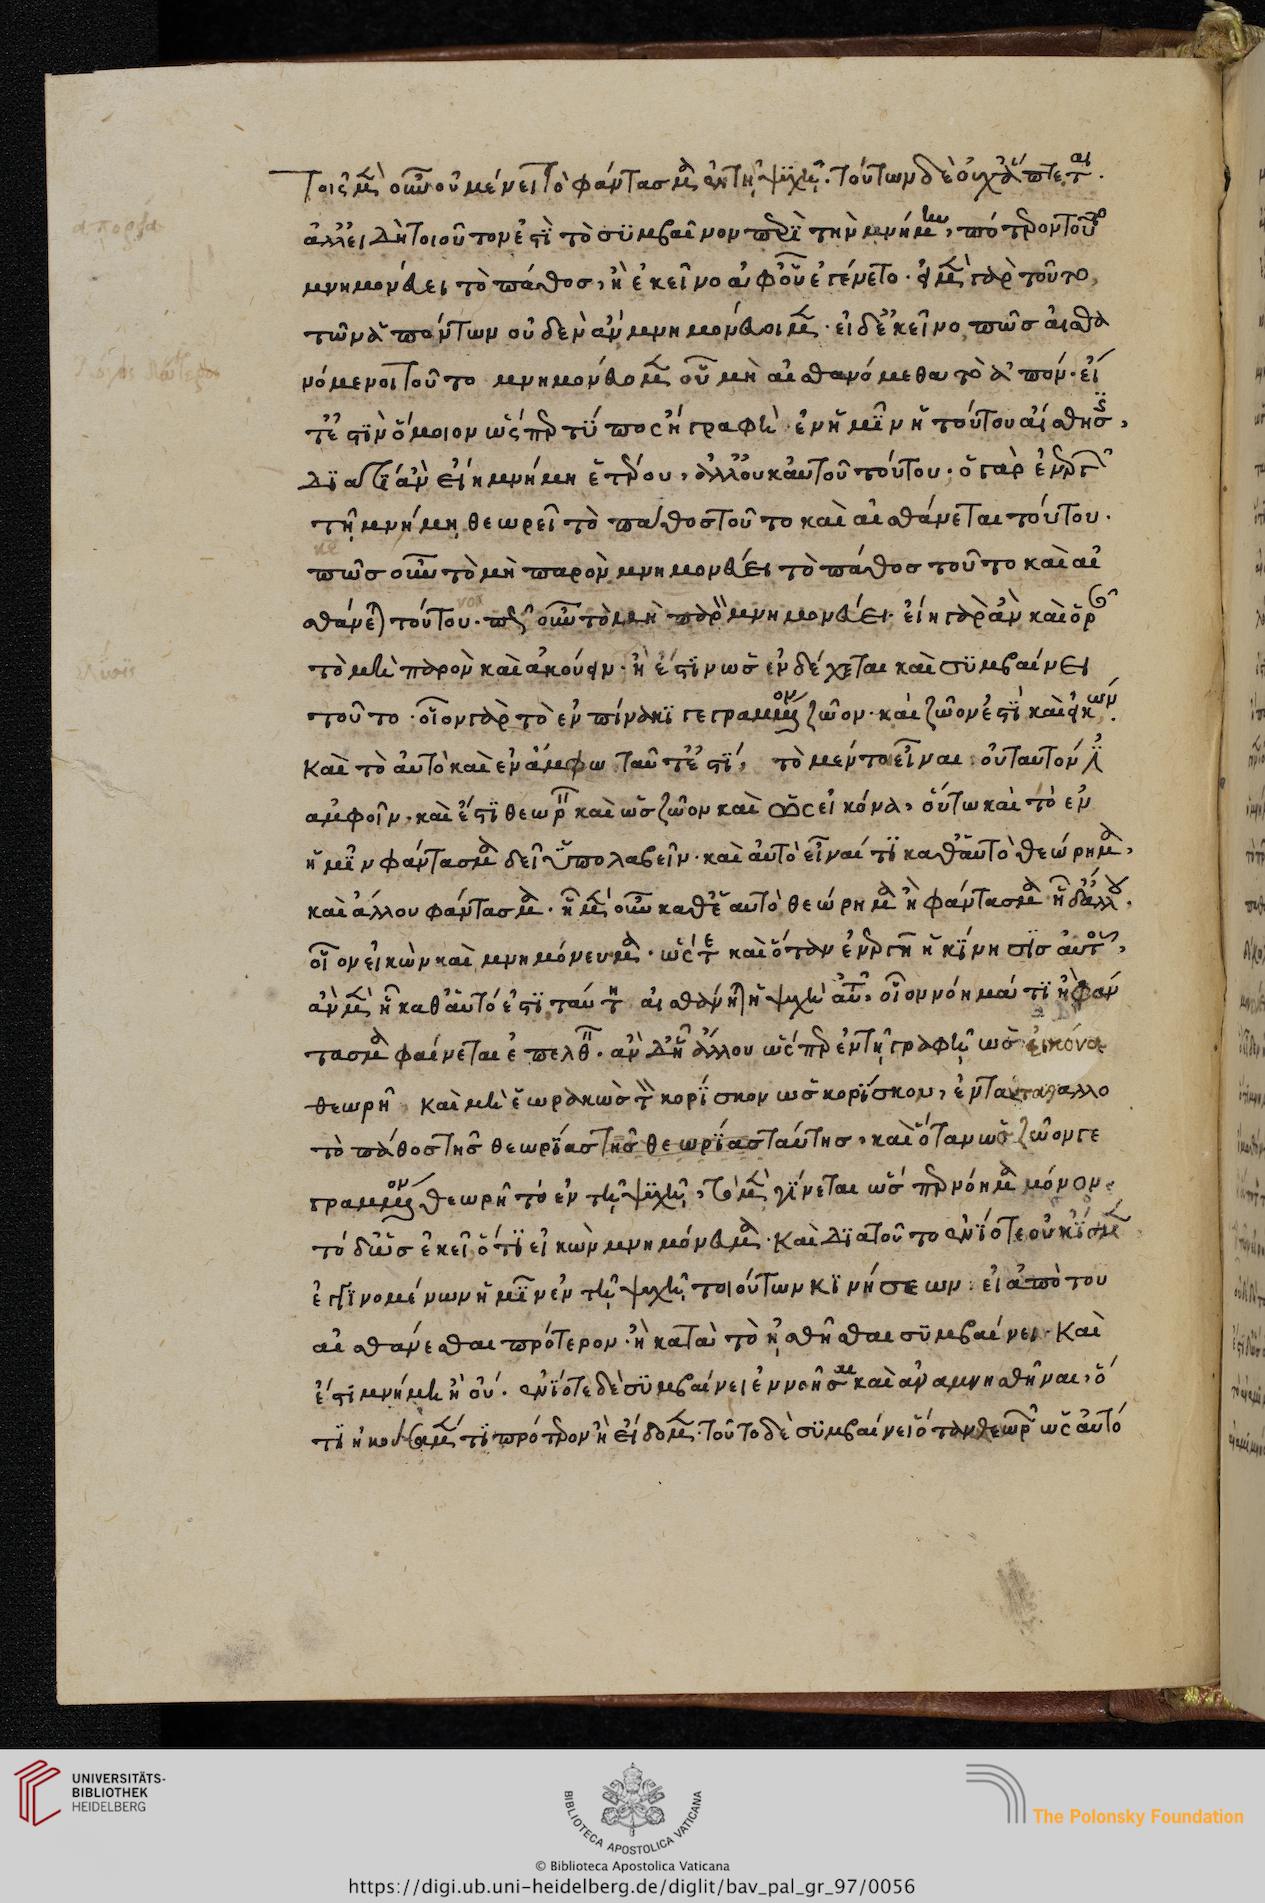 ἀπορία
λύσις
τοῖς μὲν οὖν οὐ μένει τὸ φάντασμα ἐν τῇ ψυχῇ. τούτων δὲ οὐχ ἅπτεται.
ἀλλ' εἰ δὴ τοιοῦτον ἐστὶ τὸ συμβαῖνον περὶ τὴν μνήμην, πότερον τοῦτο
μνημονεύει τὸ πάθος, ἢ ἐκεῖνο ἀφ' οὗ ἐγένετο. εἰ μὲν γὰρ τοῦτο,
τῶν ἀπόντων οὐδὲν ἂν μνημονεύοιμεν. εἰ δ' ἐκεῖνο, πῶς αἰσθα
νόμενοι τοῦτο μνημονεύομεν οὗ μὴ αἰσθανόμεθα τὸ ἀπόν. εἴ
τ' ἐστὶν ὅμοιον ὥσπερ τύπος ἢ γραφὴ ἐν ἡμῖν ἡ τούτου αἴσθησις,
διατί ἂν εἴη μνήμη ἑτέρου, ἀλλ' οὐκ αὐτοῦ τούτου. ὁ γὰρ ἐνεργῶν
τῇ μνήμῃ θεωρεῖ τὸ πάθος τοῦτο καὶ αἰσθάνεται τούτου.
πῶς οὖν τὸ μὴ παρὸν μνημονεύει τὸ πάθος τοῦτο καὶ αἰ
σθάνεται τούτου. πῶς οὖν τὸ μὴ παρὸν μνημονεύει. εἴη γὰρ ἂν καὶ ὁρᾶν
τὸ μὴ παρὸν καὶ ἀκούειν. ἢ ἔστιν ὡς ἐνδέχεται καὶ συμβαίνει
τοῦτο. οἷον γὰρ τὸ ἐν πίνακι γεγραμμένον ζῶον. καὶ ζῶον ἐστὶ καὶ εἰκών.
καὶ τὸ αὐτὸ καὶ ἓν ἄμφω ταῦτ' ἐστί, τὸ μέντοι εἶναι οὐ ταυτὸν
ἀμφοῖν. καὶ ἔστι θεωρεῖν καὶ ὡς ζῶον καὶ ὡς εἰκόνα, οὕτω καὶ τὸ ἐν
ἡμῖν φάντασμα δεῖ ὑπολαβεῖν. καὶ αὐτὸ εἶναί τι καθ' αὑτὸ θεώρημα,
καὶ ἄλλου φάντασμα. ᾗ μὲν οὖν καθ' ἑαυτὸ θεώρημα ἢ φάντασμα ᾗ δ' ἄλλου.
οἷον εἰκὼν καὶ μνημόνευμα. ὥστε καὶ ὅταν ἐνεργῇ ἡ κίνησις αὐτοῦ,
ἂν μὲν ᾗ καθ' αὑτό ἐστι ταύτῃ αἰσθάνηται ἡ ψυχὴ αὐτοῦ, οἷον νόημά τι ἢ φάν
τασμα φαίνεται ἐπελθεῖν. ἂν δ' ᾗ ἄλλου ὥσπερ ἐν τῇ γραφῇ ὡς εἰκόνα
θεωρῇ καὶ μὴ ἑωρακὼς τὸν κορίσκον ὡς κορίσκου, ἐνταῦθα ἄλλο
τὸ πάθος τῆς θεωρίας τῆς θεωρίας ταύτης, καὶ ὅταν ὡς ζῶον γε
γραμμένον θεωρῇ τό ἐν τῇ ψυχῇ, τὸ μὲν γίνεται ὥσπερ νόημα μόνον.
τό δ' ὡς ἐκεῖ ὅτι εἰκὼν μνημόνευμα. καὶ διατοῦτο ἐνίοτε οὐκ ἴσμεν
ἐγγινομένων ἡμῖν ἐν τῇ ψυχῇ τοιούτων κινήσεων εἰ ἀπὸ του
αἰσθάνεσθαι πρότερον. ἢ κατὰ τὸ ᾐσθῆσθαι συμβαίνει. καὶ
ἔστι μνήμη ἢ οὔ. ἐνίοτε δὲ συμβαίνει ἐννοῆσαι καὶ ἀναμνησθῆναι, ὅ
τι ἠκούσαμέν τι πρότερον ἢ εἴδομεν. τοῦτο δὲ συμβαίνει ὅταν θεωρῶν ὡς αὐτό
UNIVERSITÄTS-
BIBLIOTHEK
HEIDELBERG
BIBLIOTECA APOSTOLICA VATICANA
The Polonsky Foundation
© Biblioteca Apostolica Vaticana
https://digi.ub.uni-heidelberg.de/diglit/bav_pal_gr_97/0056